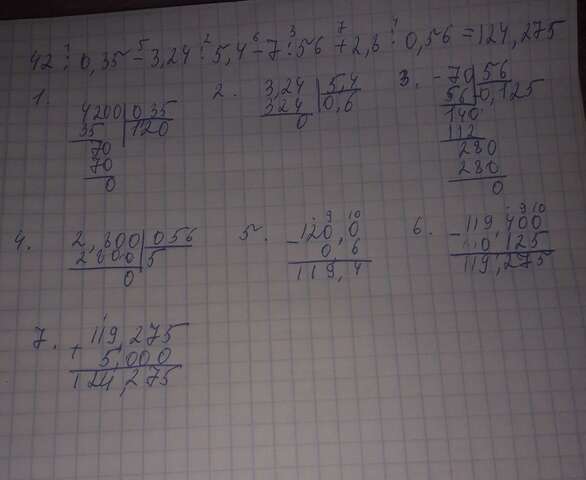 42 : 0,35 - 3,24 : 5,4 - 7 : 56 + 2,8 : 0,56 = 124,275
1 5 2 6 3 7 4
1. 4200 0,35
35 120
70
70
0
2. 3,24 5,4
324 0,6
0
3. -70 56
56 0,125
140
112
280
280
0
4. 2,800 056
2800 5
0
5. 9 10
- 120,0
0,6
119,4
6. 9 10
- 119,400
0,125
119,275
7. 1
+ 119,275
5,000
124,275